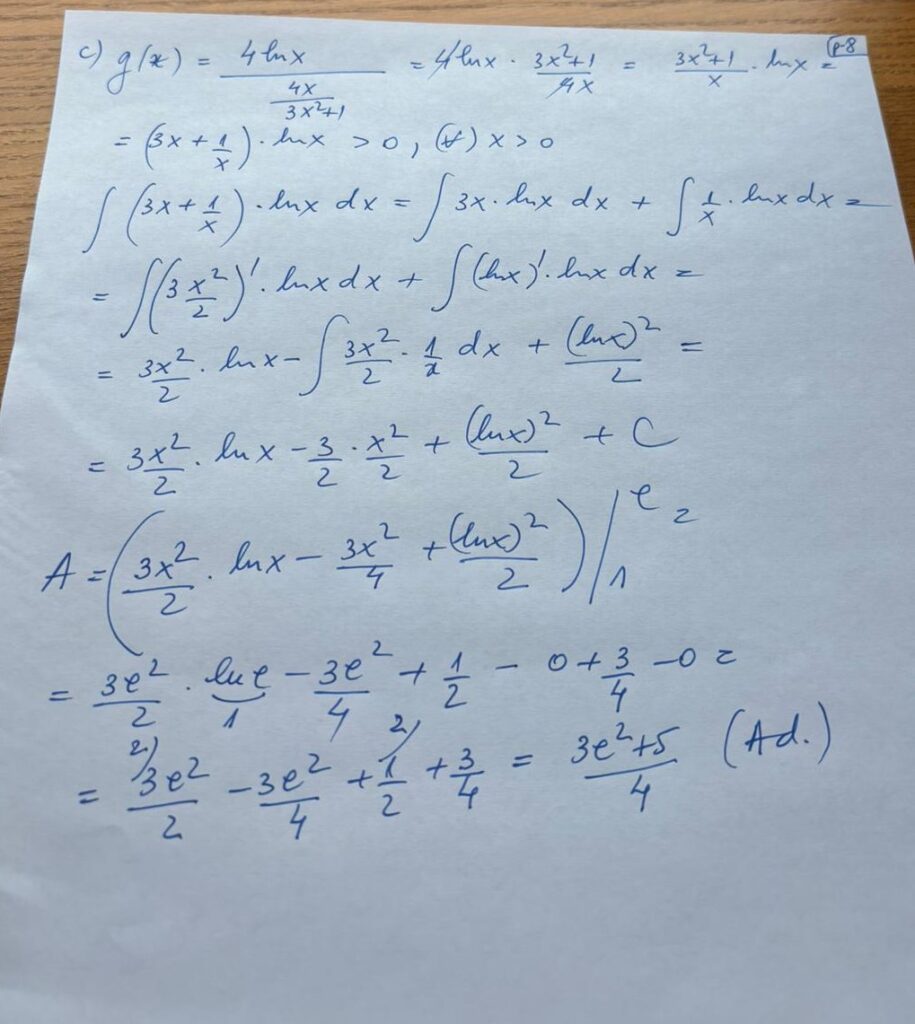 p-8
c) g(x) = 4lnx / (4x / (3x²+1)) = 4lnx · (3x²+1)/4x = (3x²+1)/x · lnx =
= (3x + 1/x) · lnx > 0, (∀) x > 0
∫ (3x + 1/x) · lnx dx = ∫ 3x · lnx dx + ∫ 1/x · lnx dx =
= ∫ (3 x²/2)' · lnx dx + ∫ (lnx)' · lnx dx =
= 3x²/2 · lnx - ∫ 3x²/2 · 1/x dx + (lnx)²/2 =
= 3x²/2 · lnx - 3/2 · x²/2 + (lnx)²/2 + C
A = (3x²/2 · lnx - 3x²/4 + (lnx)²/2) |₁ᵉ =
= 3e²/2 · lne - 3e²/4 + 1/2 - 0 + 3/4 - 0 =
1
= ²⁾3e²/2 - 3e²/4 + ²⁾1/2 + 3/4 = (3e²+5)/4 (Ad.)